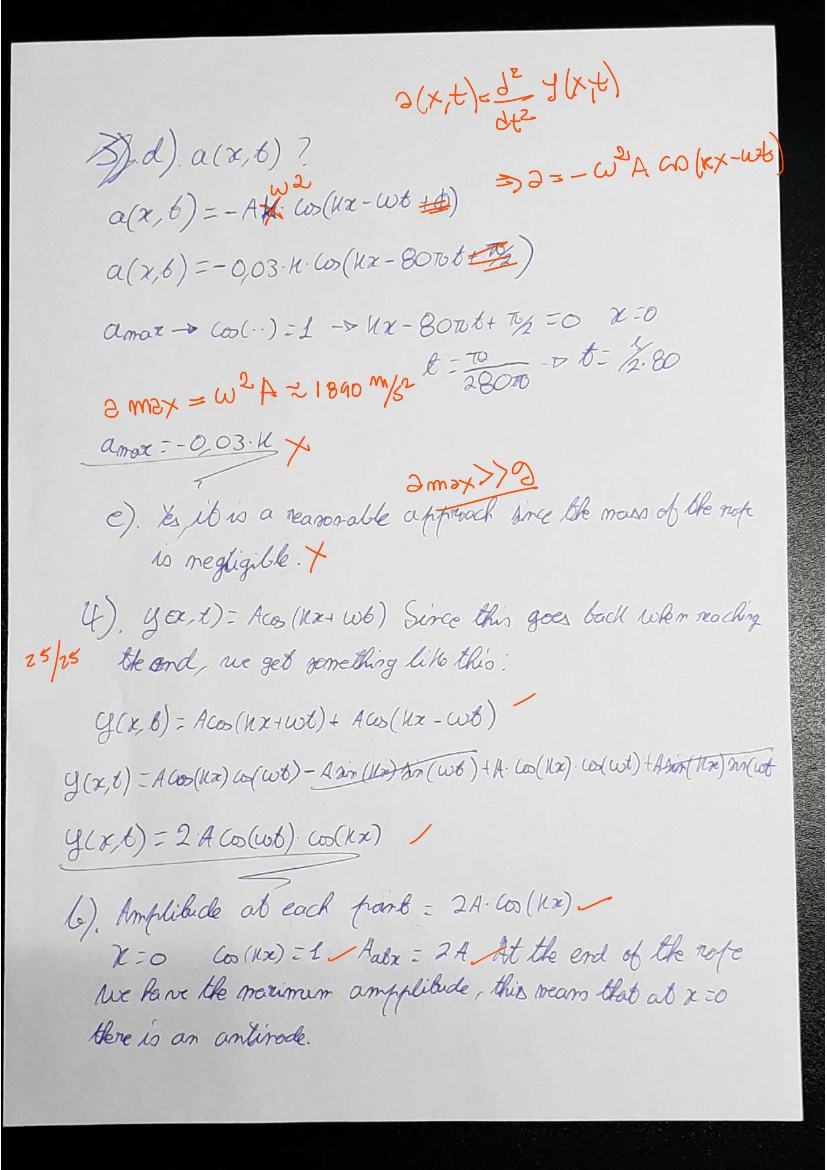 a(x,t) = d²/dt² y(x,t)
3).d). a(x,t) ?
⇒ a = -ω²A cos(kx-ωt)
ω²
a(x,t) = -A k · cos(kx-ωt +φ)
a(x,t) = -0,03·k·cos(kx-80πt+π/2)
amax → cos(··) = 1 → kx-80πt+π/2 = 0 x=0
t = π/280π → t = 1/2·80
a max = ω²A ≈ 1890 m/s²
amax = -0,03·k X
amax >> g
e). Yes, it is a reasonable approach since the mass of the rope
is negligible. X
4). y(x,t) = Acos(kx+ωt) Since this goes back when reaching
25/25
the end, we get something like this:
y(x,t) = Acos(kx+ωt) + Acos(kx-ωt)
y(x,t) = Acos(kx) cos(ωt) - Asin(kx) sin(ωt) + A·cos(kx)·cos(ωt) + Asin(kx) sin(ωt
y(x,t) = 2·A cos(ωt)·cos(kx)
b). Amplitude at each point = 2A·cos(kx)
x=0 cos(kx) = 1 = 2A At the end of the rope
we have the maximum ampplitude, this means that at x=0
there is an antinode.